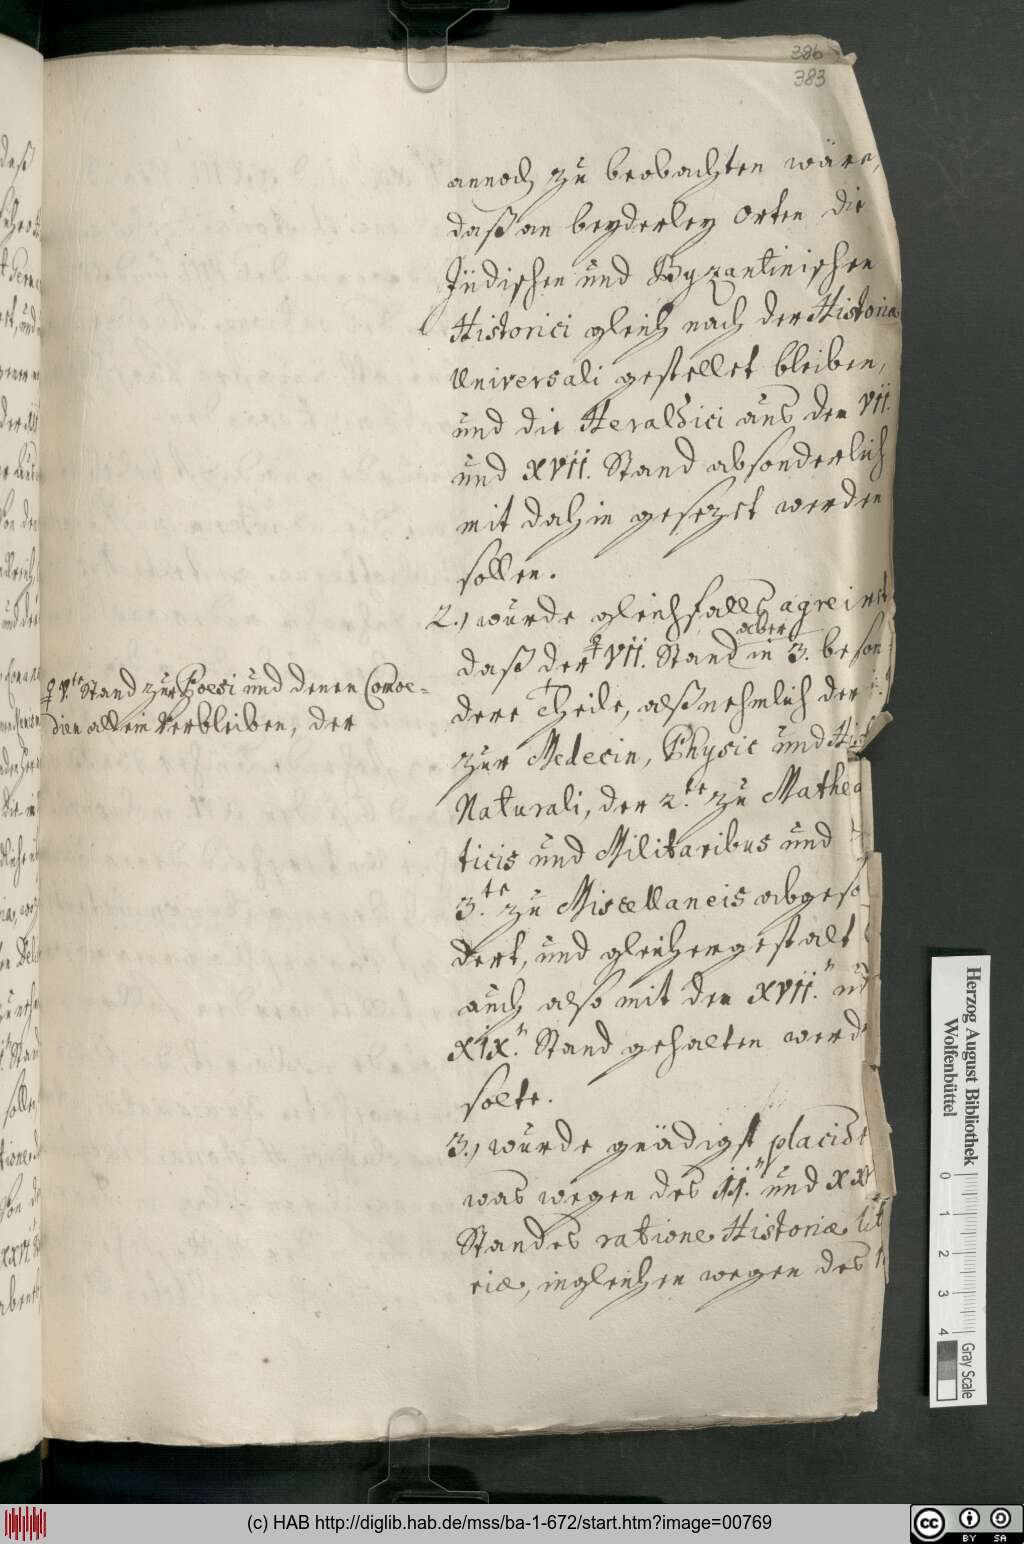 386
383
annoch zu beobachten wäre,
daß an beyderley Orten die
Jüdischen und Byzantinischen
Historici gleich nach der Historia
Universali gestellet bleiben,
und die Heraldici aus den VII.
und XVII. Stand absonderlich
mit dahin gesezet werden
sollen.
2.) würde gleichfalls agreirt
daß der VII. Stand aber in 3. beson
dere Theile, alß nehmlich der
zur Medecin, Physic und His
Naturali, der 2.te zu Mathe
ticis und Militaribus und
3.te zu Miscellaneis abgeso
dert, und gleichergestalt
auch also mit den XVII.n u
XIX.n Stand gehalten werd
solte.
3.) würde gnädigst placidt
was wegen des II.n und XX
Standes ratione Historiæ lit
riæ, ingleichen wegen des
V.te Stand zur Poesi und denen Comoe=
dien allein verbleiben, der
Herzog August Bibliothek
Wolfenbüttel
0 1 2 3 4
Gray Scale
(c) HAB http://diglib.hab.de/mss/ba-1-672/start.htm?image=00769
cc BY SA